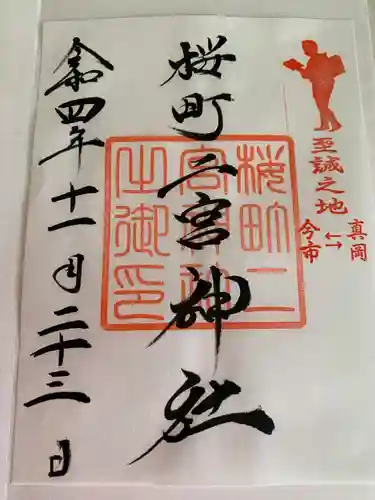 至誠之地
真岡
↔
今市
桜町二宮神社
桜町二
宮神社
之御印
令和四年十一月二十三日